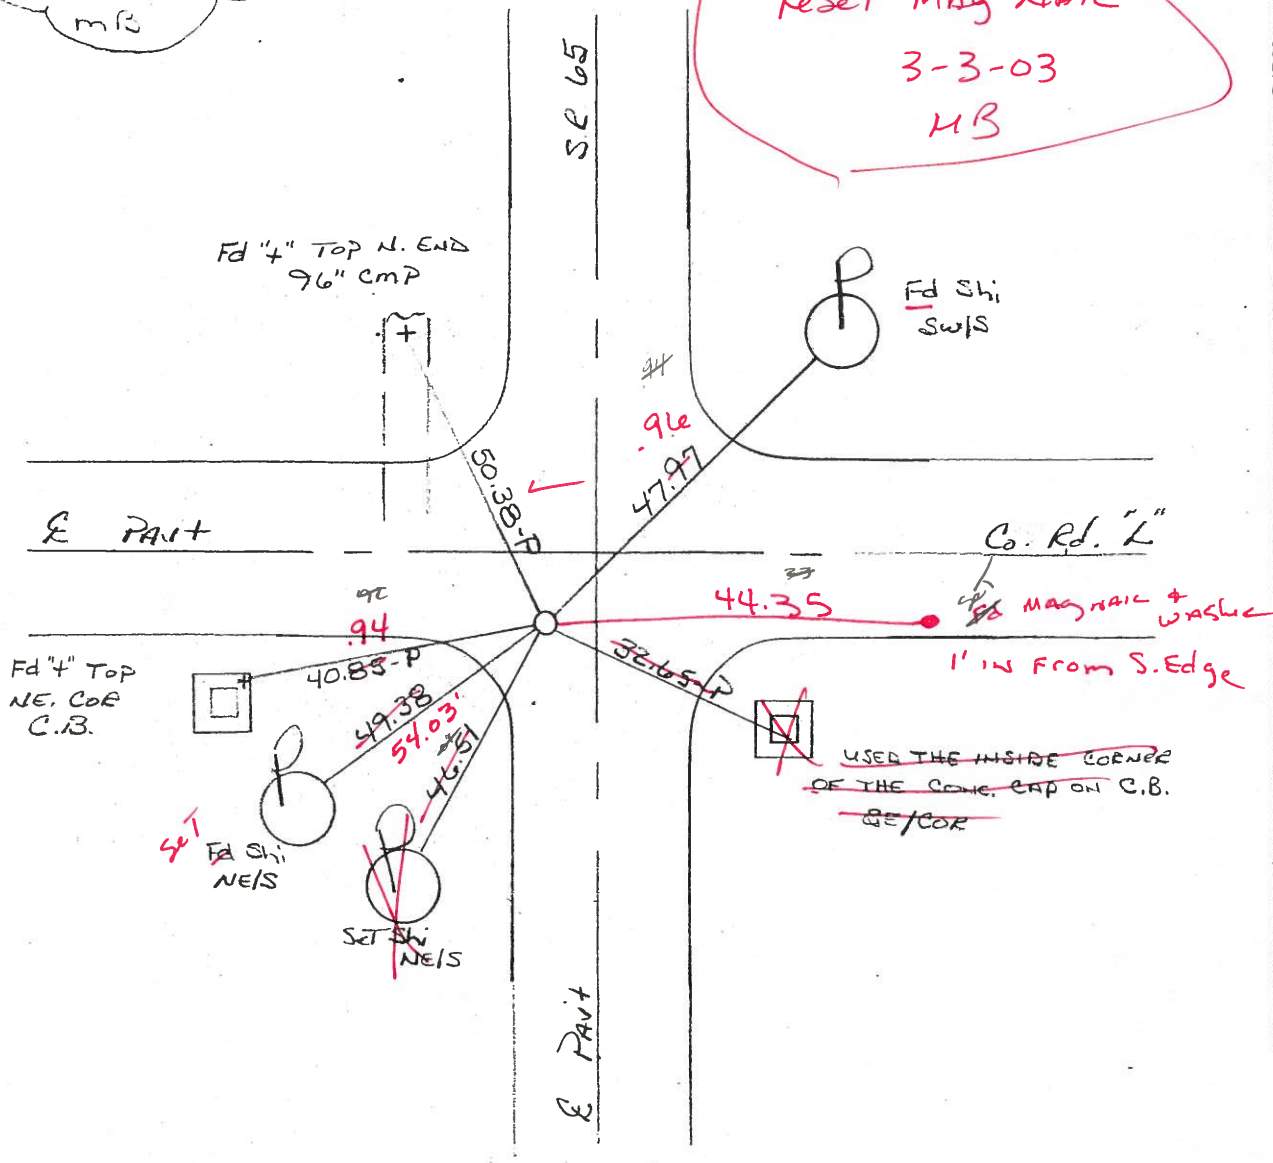 mB
reset MAG NAIL
3-3-03
MB
S.R 65
Fd "+" TOP N. END
96" CMP
Fd Shi
SW/S
94
.96
47.97
50.38-P
℄ PAVt
Co. Rd. "L"
33
44.35
MAGNAIL &
WASHER
1' IN From S. Edge
92
.94
40.85-P
Fd "+" TOP
NE. COR
C.B.
32.65-P
49.38
54.03'
46.51
USED THE INSIDE CORNER
OF THE CONC. CAP ON C.B.
SE/COR
SeT
Fd Shi
NE/S
SeT Shi
NE/S
℄ PAVt